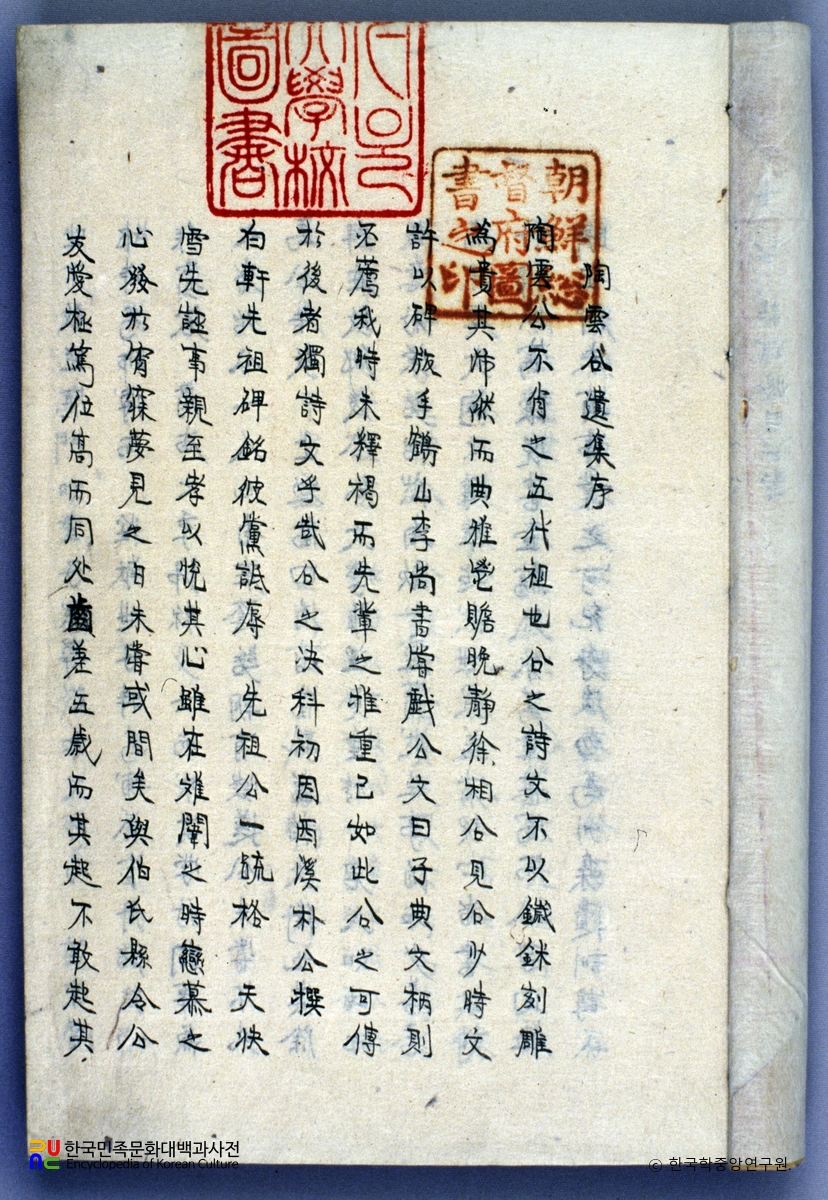 陶雲谷遺集序
陶雲公不肖之五代祖也公之詩文不以鐵銖刻雕
為貴其沛然而典雅 贍晩靜徐相公見公少時文
許以碑版手鶴山李尚書嘗戱公文曰子典文柄則
必薦我時未釋褐而先輩之推重已如此公之可傳
於後者獨詩文乎哉公之决科初因西溪朴公撰
白軒先祖碑銘彼黨詆辱 先祖公一疏格 天快
雪先誣事親至孝以悅其心雖在难闡之時戀慕之
心發於宵寐夢見之日未嘗或間矣與伯氏縣令公
友愛極篤位髙而同处齒差五歲而其起不敢起其
朝鮮総
督府圖
書之印
大學校
圖書
한국민족문화대백과사전
Encyclopedia of Korean Culture
© 한국학중앙연구원